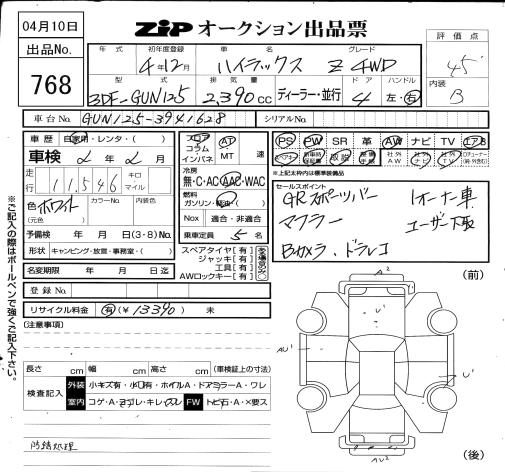 04月10日
ZIP オークション出品票
評価点
出品No.
768
年式 初年度登録 車名 グレード
4年12月 ハイラックス Z 4WD
4.5
型式 排気量 ドア ハンドル
内装
3DF-GUN125 2,390cc ディーラー・並行 4 左・右
B
車台No. GUN125-3941628 シリアルNo.
車歴 自家用・レンタ・( )
フロア コラム インパネ AT MT 速
PS PW SR 革 AW ナビ TV エアB
車検 年 月 日
冷房 無・C・AC AAC・WAC
※上記太枠内は標準装備品
走行 11,546 キロ マイル
燃料 ガソリン・軽油・( )
セールスポイント
GRスポーツバー 1オーナー車
マフラー ユーザー下取
Bカメラ・ドラレコ
色 ホワイト カラーNo. 内装色
(元色)
Nox 適合・非適合
予備検 年 月 日(3・8)No.
乗車定員 5名
形状 キャンピング・放冒・事務室・( )
スペアタイヤ[有]
ジャッキ[有]
工具[有]
AWロックキー[有]
名変期限 年 月 日迄
登録No.
リサイクル料金 有(¥13390) 未
(注意事項)
※ご記入の際はボールペンで強くご記入下さい。
(前)
A2
U'
AU'
U'
AU2
(後)
長さ cm 幅 cm 高さ cm (車検証上の寸法)
検査記入 外装 小キズ有・小凹有・ホイルA・ドアミラーA・ワレ
室内 コゲ・A・ヨゴレ・キレ・スレ FW トビ石・A・×要ス
防錆処理